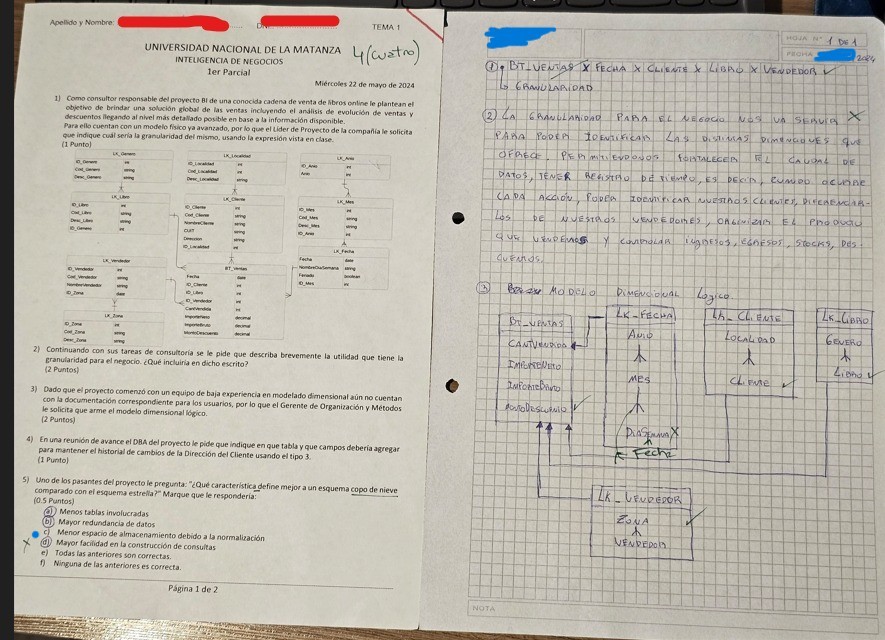 Apellido y Nombre:
TEMA 1
UNIVERSIDAD NACIONAL DE LA MATANZA
INTELIGENCIA DE NEGOCIOS
1er Parcial
4 (cuatro)
Miércoles 22 de mayo de 2024
1) Como consultor responsable del proyecto BI de una conocida cadena de venta de libros online le plantean el
objetivo de brindar una solución global de las ventas incluyendo el análisis de evolución de ventas y
descuentos llegando al nivel más detallado posible en base a la información disponible.
Para ello cuentan con un modelo físico ya avanzado, por lo que el Líder de Proyecto de la compañía le solicita
que indique cuál sería la granularidad del mismo, usando la expresión vista en clase.
(1 Punto)
LK_Genero
ID_Genero int
Cod_Genero string
Desc_Genero string
LK_Localidad
ID_Localidad int
Cod_Localidad string
Desc_Localidad string
LK_Anio
ID_Anio int
Anio int
LK_Libro
ID_Libro int
Cod_Libro string
Desc_Libro string
ID_Genero int
LK_Cliente
ID_Cliente int
Cod_Cliente string
NombreCliente string
CUIT string
Direccion string
ID_Localidad int
LK_Mes
ID_Mes int
Cod_Mes string
Desc_Mes string
ID_Anio int
LK_Vendedor
ID_Vendedor int
Cod_Vendedor string
NombreVendedor string
ID_Zona date
BT_Ventas
Fecha date
ID_Cliente int
ID_Libro int
ID_Vendedor int
CantVendida int
ImporteNeto decimal
ImporteBruto decimal
MontoDescuento decimal
LK_Fecha
Fecha date
NombreDiaSemana string
Feriado boolean
ID_Mes int
LK_Zona
ID_Zona int
Cod_Zona string
Desc_Zona string
2) Continuando con sus tareas de consultoría se le pide que describa brevemente la utilidad que tiene la
granularidad para el negocio. ¿Qué incluiría en dicho escrito?
(2 Puntos)
3) Dado que el proyecto comenzó con un equipo de baja experiencia en modelado dimensional aún no cuentan
con la documentación correspondiente para los usuarios, por lo que el Gerente de Organización y Métodos
le solicita que arme el modelo dimensional lógico.
(2 Puntos)
4) En una reunión de avance el DBA del proyecto le pide que indique en que tabla y que campos debería agregar
para mantener el historial de cambios de la Dirección del Cliente usando el tipo 3.
(1 Punto)
5) Uno de los pasantes del proyecto le pregunta: "¿Qué característica define mejor a un esquema copo de nieve
comparado con el esquema estrella?" Marque que le respondería:
(0.5 Puntos)
a) Menos tablas involucradas
b) Mayor redundancia de datos
c) Menor espacio de almacenamiento debido a la normalización
d) Mayor facilidad en la construcción de consultas
e) Todas las anteriores son correctas.
f) Ninguna de las anteriores es correcta.
Página 1 de 2
HOJA N° 1 DE 1
FECHA 2024
① BT_VENTAS X FECHA X CLIENTE X LIBRO X VENDEDOR
GRANULARIDAD
② LA GRANULARIDAD PARA EL NEGOCIO NOS VA SERVIR
PARA PODER IDENTIFICAR LAS DISTINTAS DIMENCIONES QUE
OFRECE. PERMITIENDONOS FORTALECER EL CAUDAL DE
DATOS, TENER REGISTRO DE TIEMPO, ES DECIR, CUANDO OCURRE
CADA ACCIÓN, PODER IDENTIFICAR NUESTROS CLIENTES, DIFERENCIAR-
LOS DE NUESTROS VENDEDORES, ORGANIZAR EL PRODUCTO
QUE VENDEMOS Y CONTROLAR INGRESOS, EGRESOS, STOCKS, DES-
CUENTOS.
③ MODELO DIMENCIONAL Logico
BT_VENTAS
CANTVENDIDA
IMPORTENETO
IMPORTEBRUTO
MONTODESCUENTO
LK_FECHA
AÑIO
MES
DIASEMANA
Fecha
LK_CLIENTE
LOCALIDAD
CLIENTE
LK_LIBRO
GENERO
LIBRO
LK_VENDEDOR
ZONA
VENDEDOR
NOTA